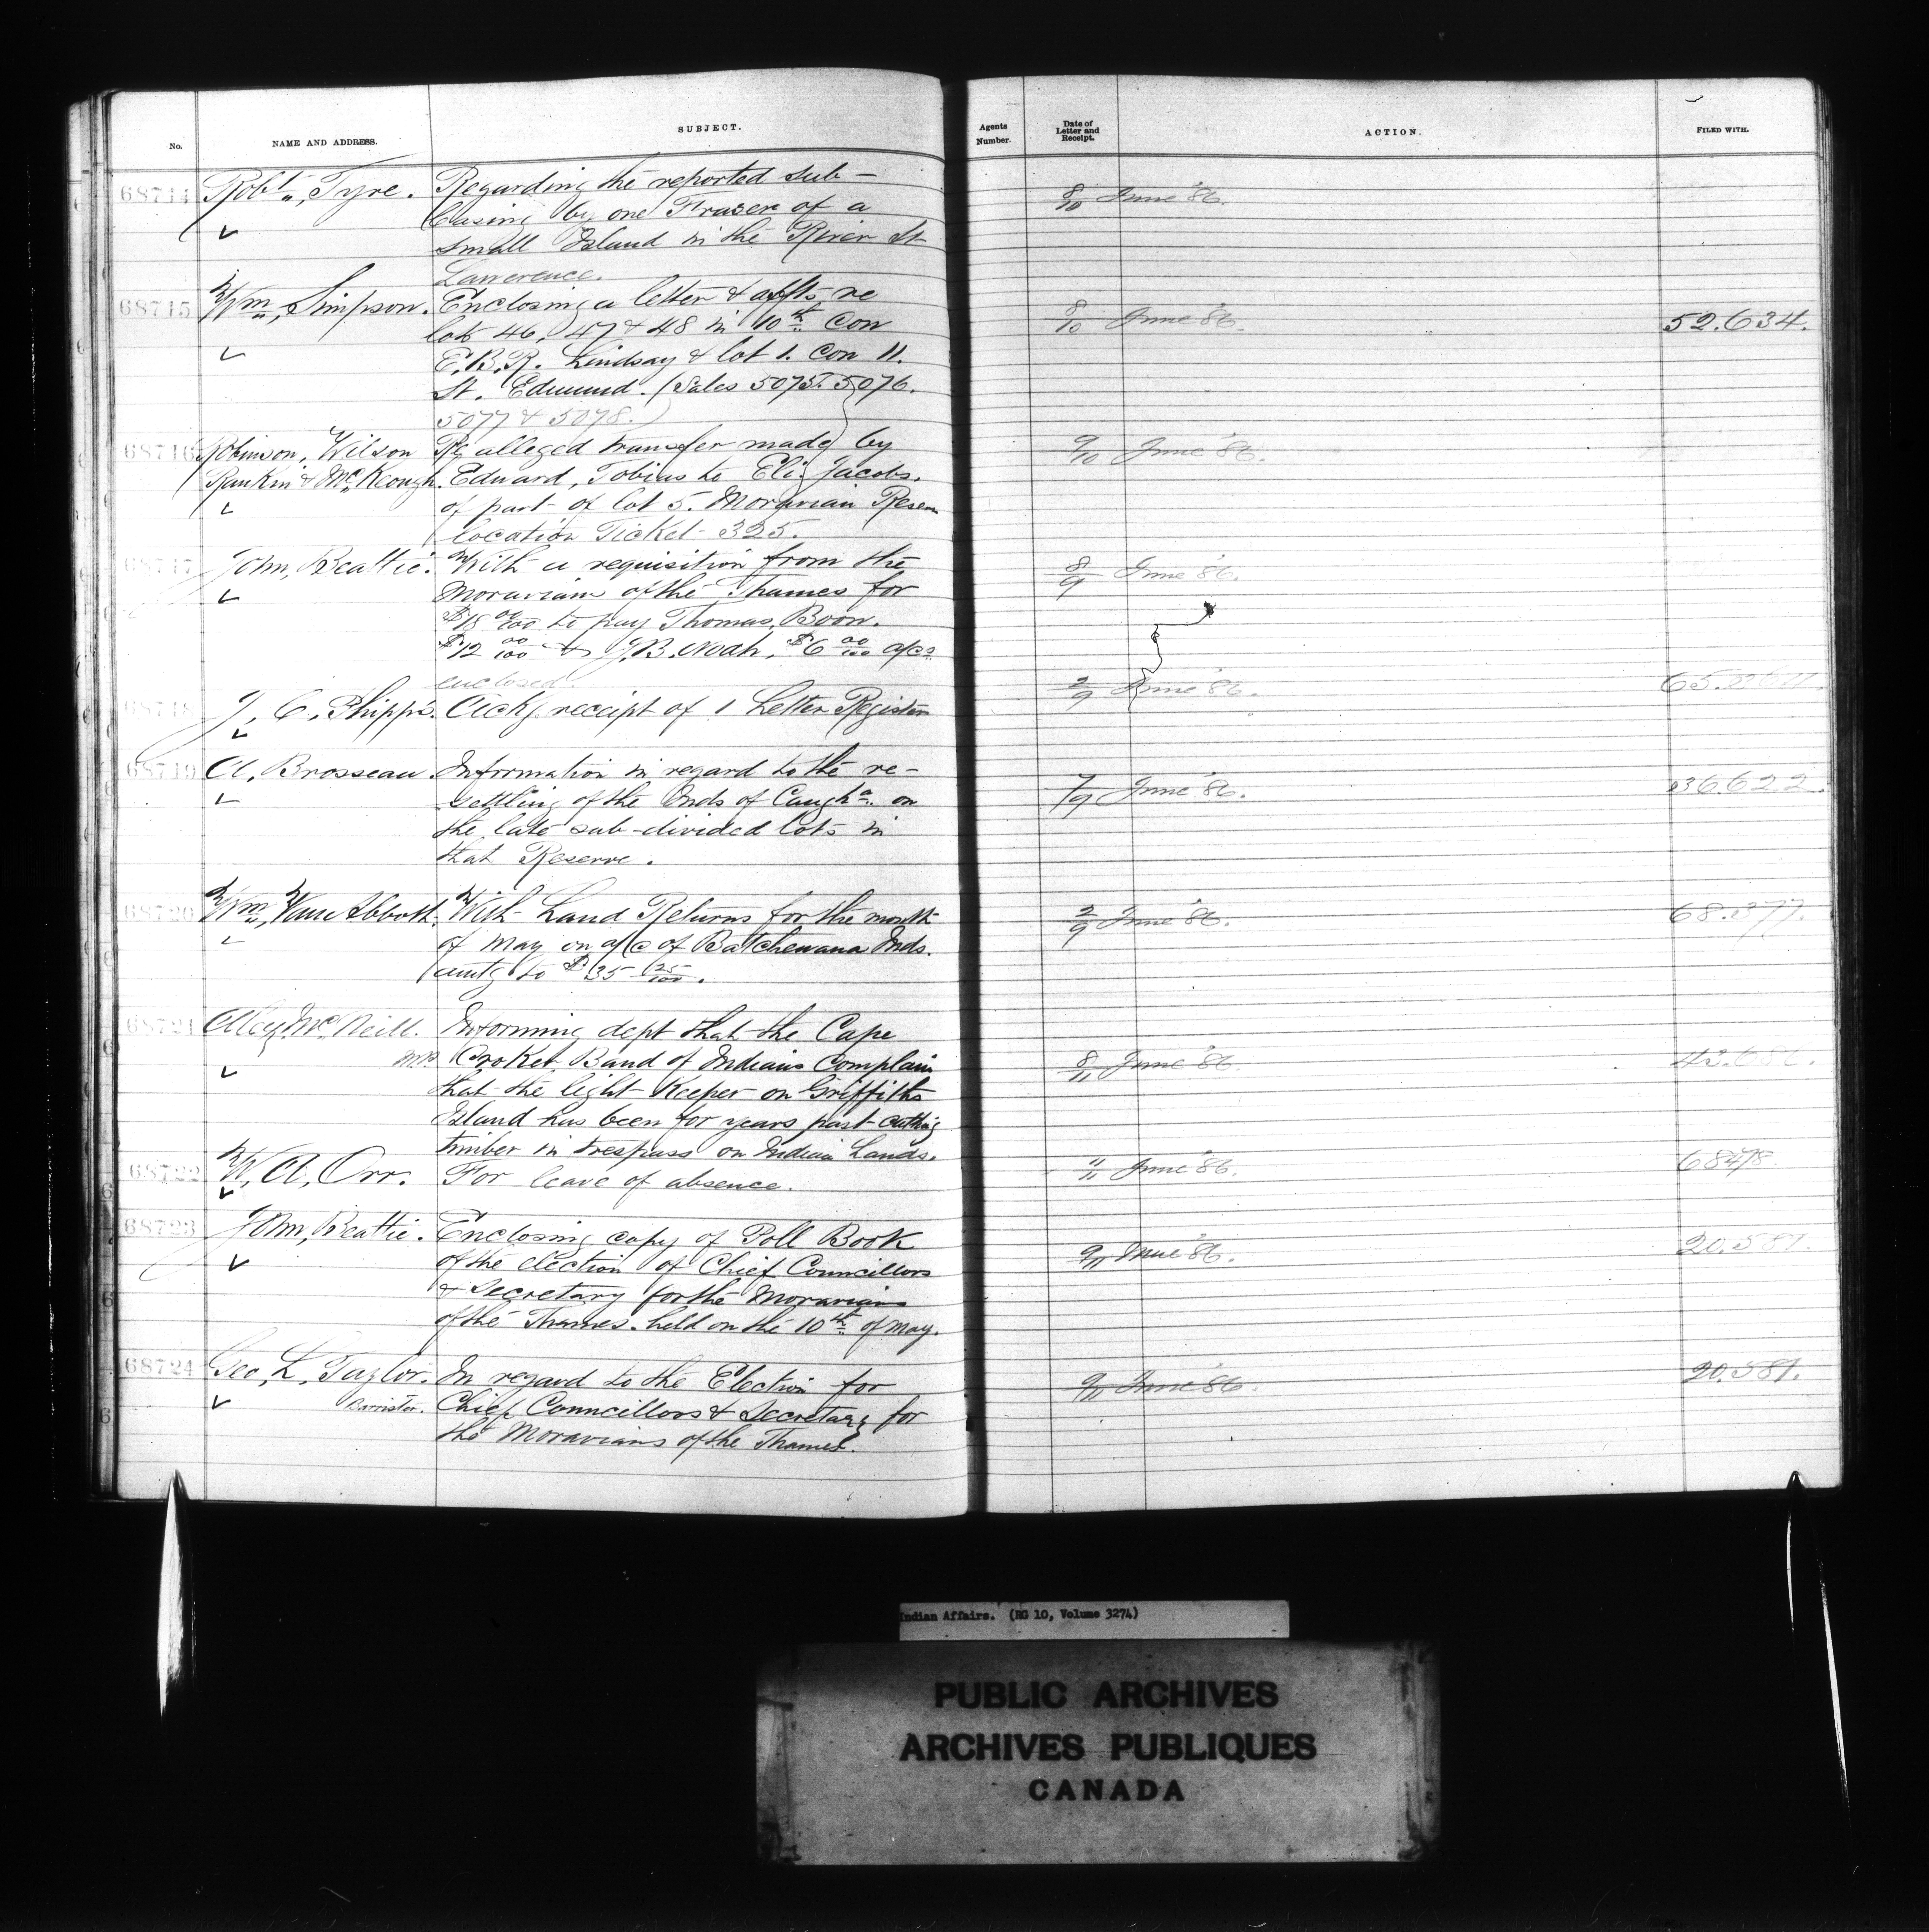 No. NAME AND ADDRESS. SUBJECT. Agents Number. Date of Letter and Receipt. ACTION. FILED WITH.
68714 Robt., Tyre. Regarding the reported sub- 8/10 June '86.
leasing by one Fraser of a
small Island in the River St
Lawerence.
68715 Wm., Simpson. Enclosing a letter & affts re 8/10 June '86. 52.634.
lots 46, 47 & 48 in 10th Con
E.B.R. Lindsay & lot 1. Con 11.
St. Edmund. (Sales 5075. 5076.
5077 & 5078.)
68716 Robinson, Wilson Re alleged transfer made by 9/10 June '86.
Rankin & McKeough. Edward, Tobias to Eli Jacobs.
of part of lot 5. Moravian Reserve
location Ticket 325.
68717 John, Beattie. With a requisition from the 8/9 June '86.
Moravians of the Thames for
$18 00/100 to pay Thomas, Boon.
$12 00/100 & J.B. Noah, $6 00/100 a/cs
enclosed.
68718 J, C, Phipps. Ackg receipt of 1 Letter Register 2/9 June '86.
68719 A, Brosseau. Information in regard to the re- 7/9 June '86. 36.622.
settling of the Inds of Caugha. on
the late sub-divided lots in
that Reserve.
68720 Wm., Van Abbott. With Land Returns for the month 2/9 June '86. 68.377.
of May on a/c of Batchewana Inds.
amtg to $35 25/100.
68721 Alex, McNeill. Informing dept that the Cape
M.P. Croker Band of Indians Complain 8/11 June '86
that the light Keeper on Griffiths
Island has been for years past cutting
timber in trespass on Indian Lands.
68722 W, A, Orr. For leave of absence. 11/11 June '86. 68478
68723 John, Beattie. Enclosing copy of Poll Book 9/11 June '86. 20.581.
of the election of Chief Councillors
& Secretary for the Moravians
of the Thames. held on the 10th of May.
68724 Geo, L, Taylor. In regard to the Election for 9/11 June '86. 20.581.
Barrister. Chief Councillors & Secretary for
the Moravians of the Thames.
Indian Affairs. (RG 10, Volume 3274)
PUBLIC ARCHIVES
ARCHIVES PUBLIQUES
CANADA